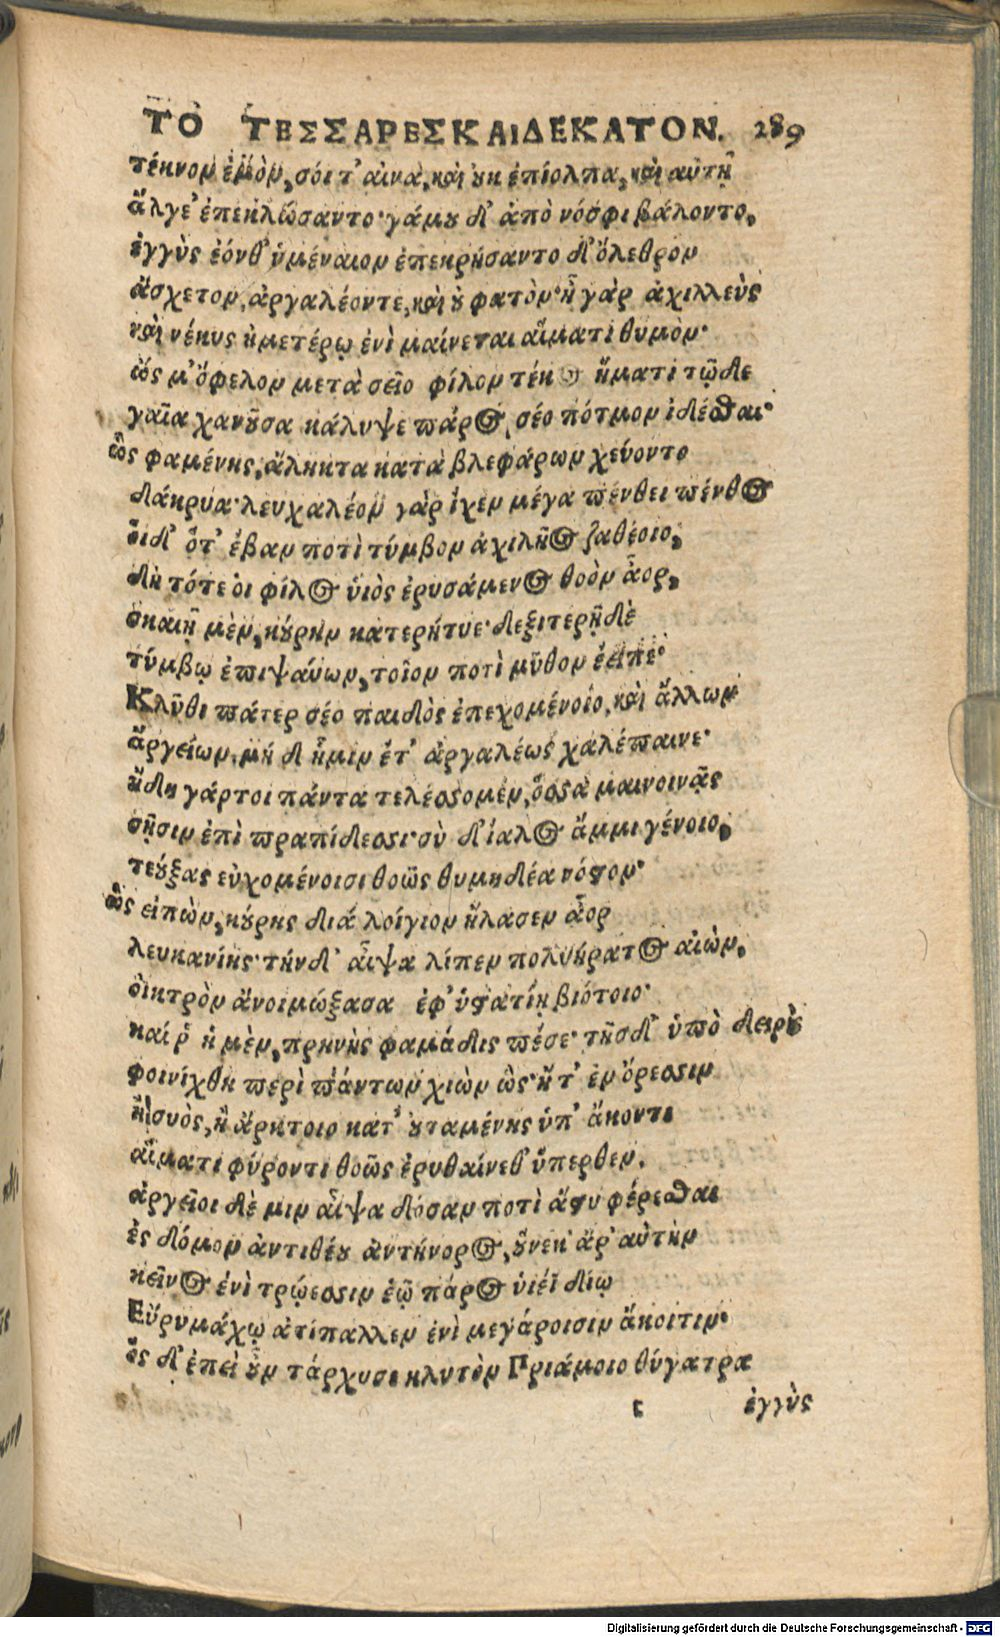 ΤΟ ΤΕΣΣΑΡΕΣΚΑΙΔΕΚΑΤΟΝ. 289
τέκνον ἐμὸν, σοί τ' αἰνὰ, καὶ οὐκ ἐπίολπα, καὶ αὐτῇ
ἄλγε' ἐπεκλώσαντο· γάμου δ' ἀπὸ νόσφι βάλοντο,
ἐγγὺς ἐόνθ' ὑμέναιον ἐπεκρήσαντο δ' ὄλεθρον
ἄσχετον, ἀργαλέοντε, καὶ οὐ φατὸν· ἦ γὰρ ἀχιλλεὺς
καὶ νέκυς ἡμετέρῳ ἐνὶ μαίνεται αἵματι θυμὸν·
ὥς μ' ὄφελον μετὰ σεῖο φίλον τέκος ἤματι τῷδε
γαῖα χανοῦσα κάλυψε πάρος, σέο πότμον ἰδέσθαι·
ὣς φαμένης, ἄληκτα κατὰ βλεφάρων χεύοντο
δάκρυα· λευχαλέον γὰρ ἔχεν μέγα πένθει πένθος
οἱ δ' ὅτ' ἔβαν ποτὶ τύμβον ἀχιλῆος ζαθέοιο,
δὴ τότε οἱ φίλος ὑιὸς ἐρυσάμενος θοὸν ἆορ,
σκαιῇ μὲν, κούρην κατερήτυε· δεξιτερῇ δὲ
τύμβῳ ἐπιψαύων, τοῖον ποτὶ μῦθον ἔειπε·
Κλῦθι πάτερ σέο παιδὸς ἐπεχομένοιο, καὶ ἄλλων
ἄργείων, μή δ ἧμιν ἔτ' ἀργαλέως χαλέπαινε·
ἤδη γάρτοι πάντα τελέσσομεν, ὅσσα μαινοινᾷς
σῇσιν ἐπὶ πραπίδεσσι· σὺ δ' ἵαλος ἄμμι γένοιο,
τεύξας εὐχομένοισι θοῶς θυμηδέα νόστον·
ὣς εἰπὼν, κούρης διά λοίγιον ἤλασεν ἆορ
λευκανίης· τὴν δ' αἶψα λίπεν πολυήρατος αἰὼν,
ὀικτρὸν ἀνοιμώξασα ἐφ' ὑστατίῃ βιότοιο·
καί ῥ' ἡ μὲν, πρηνὴς φαμάδις πέσε· τῆς δ' ὑπὸ δειρὶς
φοινίχθη περὶ πάντων χιὼν ὣς· ἥ τ' ἐν ὄρεσσιν
ἢ συὸς, ἢ ἄρκτοιο κατ' οὐταμένης ὑπ' ἄκοντι
αἵματι φύροντι θοῶς ἐρυθαίνεθ' ὕπερθεν.
ἀργεῖοι δὲ μιν αἶψα δόσαν ποτὶ ἄστυ φέρεσθαι
ἐς δόμον ἀντιθέου ἀντήνορος, οὕνεκ' ἄρ' αὐτὴν
κεῖνος ἐνὶ τρώεσσιν ἑῷ πάρος υἱέϊ δίῳ
Εὐρυμάχῳ ἀτίταλλεν ἐνὶ μεγάροισιν ἄκοιτιν·
ὃς δ' ἐπεὶ οὖν τάρχυσε κλυτὸν Πριάμοιο θύγατρα
ἐγγὺς
Digitalisierung gefördert durch die Deutsche Forschungsgemeinschaft - DFG